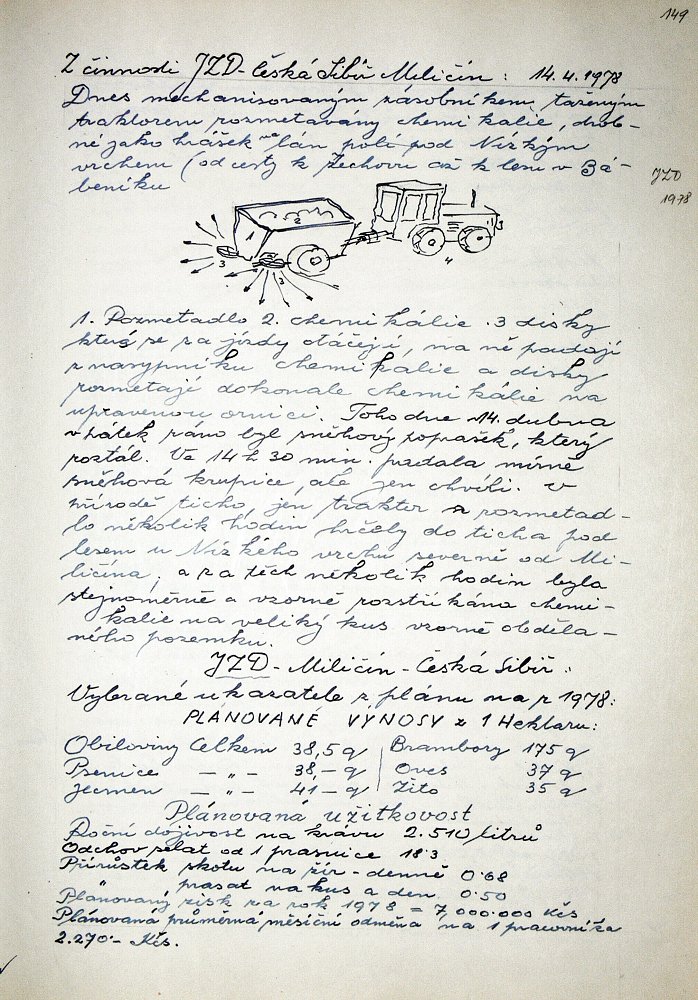 149
Z činnosti JZD - Česká Sibiř Miličín : 14.4.1978
Dnes mechanisovaným zásobníkem, taženým
traktorem rozmetávány chemikalie, drob-
né jako hrášek na lán polí pod Nízkým
vrchem (od cesty k Žechovu až k lesu v Bá-
beníku
JZD
1978
1 2 3 3 4 5
1. Rozmetadlo 2. chemikálie . 3 disky
které se za jízdy otáčejí, na ně padají
z nasypníku chemikalie a disky
rozmetají dokonale chemikálie na
upravenou ornici. Toho dne 14. dubna
v pátek ráno byl sněhový poprašek, který
roztál. Ve 14 h 30 min. padala mírně
sněhová krupice, ale jen chvíli. V
přírodě ticho, jen traktor a rozmetad-
lo několik hodin hrčely do ticha pod
lesem u Nízkého vrchu severně od Mi-
ličína, a za těch několik hodin byla
stejnoměrně a vzorně rozstříkána chemi-
kalie na veliký kus vzorně obděla-
ného pozemku.
JZD - Miličín - Česká Sibiř :
Vybrané ukazatele z plánu na r 1978:
PLÁNOVANÉ VÝNOSY z 1 Hektaru:
Obiloviny Celkem 38,5 q Brambory 175 q
Psenice — „ — 38,- q Oves 37 q
Jecmen — „ — 41 - q Žito 35 q
Plánovaná užitkovost
Roční dojivost na krávu 2.510 litrů
Odchov selat od 1 prasnice 18.3
Přírůstek skotu na žír - denně 0.68
„ prasat na kus a den 0.50
Plánovaný zisk za rok 1978 = 7,000.000 Kčs
Plánovaná průměrná měsíční odměna na 1 pracovníka
2.270.- Kčs.